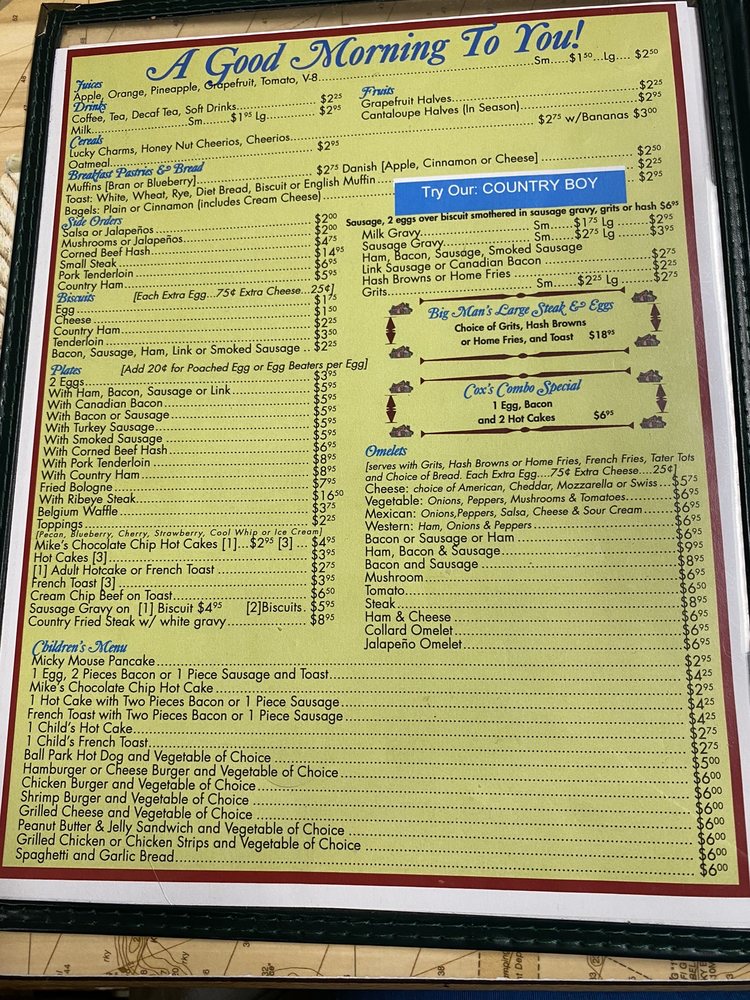 A Good Morning To You!
Juices
Apple, Orange, Pineapple, Grapefruit, Tomato, V-8......Sm.....$1.50...Lg.... $2.50
Drinks
Coffee, Tea, Decaf Tea, Soft Drinks.....$2.25
Milk.....Sm.....$1.95 Lg.....$2.95
Fruits
Grapefruit Halves.....$2.25
Cantaloupe Halves (In Season).....$2.95
Cereals
Lucky Charms, Honey Nut Cheerios, Cheerios.....$2.75 w/Bananas $3.00
Oatmeal.....$2.95
Breakfast Pastries & Bread
Muffins [Bran or Blueberry].....$2.75 Danish [Apple, Cinnamon or Cheese].....$2.50
Toast: White, Wheat, Rye, Diet Bread, Biscuit or English Muffin.....$2.25
Bagels: Plain or Cinnamon (includes Cream Cheese).....$2.95
Try Our: COUNTRY BOY
Sausage, 2 eggs over biscuit smothered in sausage gravy, grits or hash $6.95
Side Orders
Salsa or Jalapeños.....$2.00
Mushrooms or Jalapeños.....$2.00
Corned Beef Hash.....$4.75
Small Steak.....$14.95
Pork Tenderloin.....$6.95
Country Ham.....$5.95
Milk Gravy.....Sm.....$1.75 Lg.....$2.95
Sausage Gravy.....Sm.....$2.75 Lg.....$3.95
Ham, Bacon, Sausage, Smoked Sausage
Link Sausage or Canadian Bacon.....$2.75
Hash Browns or Home Fries.....$2.25
Grits.....Sm.....$2.25 Lg.....$2.75
Biscuits [Each Extra Egg...75¢ Extra Cheese...25¢]
Egg.....$1.75
Cheese.....$1.50
Country Ham.....$2.25
Tenderloin.....$3.50
Bacon, Sausage, Ham, Link or Smoked Sausage .. $2.25
Big Man's Large Steak & Eggs
Choice of Grits, Hash Browns
or Home Fries, and Toast $18.95
Cox's Combo Special
1 Egg, Bacon
and 2 Hot Cakes $6.95
Plates [Add 20¢ for Poached Egg or Egg Beaters per Egg]
2 Eggs.....$3.95
With Ham, Bacon, Sausage or Link.....$5.95
With Canadian Bacon.....$5.95
With Bacon or Sausage.....$5.95
With Turkey Sausage.....$5.95
With Smoked Sausage.....$5.95
With Corned Beef Hash.....$6.95
With Pork Tenderloin.....$8.95
With Country Ham.....$8.95
Fried Bologne.....$7.95
With Ribeye Steak.....$16.50
Belgium Waffle.....$3.75
Toppings.....$2.25
[Pecan, Blueberry, Cherry, Strawberry, Cool Whip or Ice Cream]
Mike's Chocolate Chip Hot Cakes [1]...$2.95 [3] ... $4.95
Hot Cakes [3].....$3.95
[1] Adult Hotcake or French Toast.....$2.75
French Toast [3].....$3.95
Cream Chip Beef on Toast.....$6.50
Sausage Gravy on [1] Biscuit $4.95 [2]Biscuits. $5.95
Country Fried Steak w/ white gravy.....$8.95
Omelets
[serves with Grits, Hash Browns or Home Fries, French Fries, Tater Tots
and Choice of Bread. Each Extra Egg....75¢ Extra Cheese....25¢]
Cheese: choice of American, Cheddar, Mozzarella or Swiss...$5.75
Vegetable: Onions, Peppers, Mushrooms & Tomatoes.....$6.95
Mexican: Onions,Peppers, Salsa, Cheese & Sour Cream.....$6.95
Western: Ham, Onions & Peppers.....$6.95
Bacon or Sausage or Ham.....$6.95
Ham, Bacon & Sausage.....$9.95
Bacon and Sausage.....$8.95
Mushroom.....$6.95
Tomato.....$6.50
Steak.....$8.95
Ham & Cheese.....$6.95
Collard Omelet.....$6.95
Jalapeño Omelet.....$6.95
Children's Menu
Micky Mouse Pancake.....$2.95
1 Egg, 2 Pieces Bacon or 1 Piece Sausage and Toast.....$4.25
Mike's Chocolate Chip Hot Cake.....$2.95
1 Hot Cake with Two Pieces Bacon or 1 Piece Sausage.....$4.25
French Toast with Two Pieces Bacon or 1 Piece Sausage.....$4.25
1 Child's Hot Cake.....$2.75
1 Child's French Toast.....$2.75
Ball Park Hot Dog and Vegetable of Choice.....$5.00
Hamburger or Cheese Burger and Vegetable of Choice.....$6.00
Chicken Burger and Vegetable of Choice.....$6.00
Shrimp Burger and Vegetable of Choice.....$6.00
Grilled Cheese and Vegetable of Choice.....$6.00
Peanut Butter & Jelly Sandwich and Vegetable of Choice.....$6.00
Grilled Chicken or Chicken Strips and Vegetable of Choice.....$6.00
Spaghetti and Garlic Bread.....$6.00